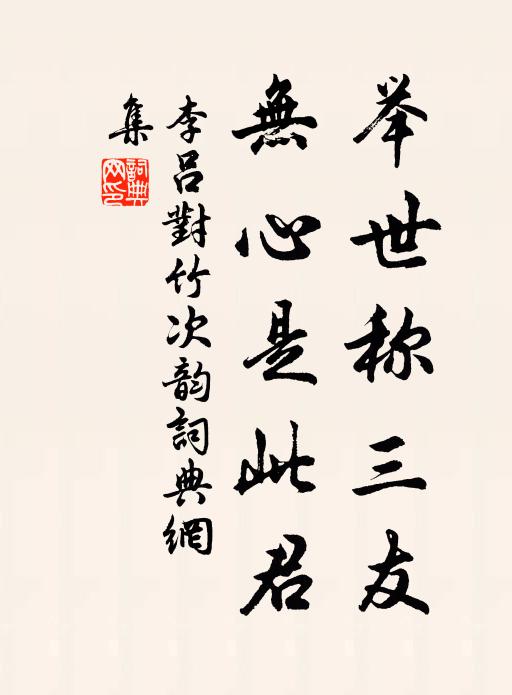 举世称三友
無心是此君
李吕對竹次韵詞典網
集
詞典網印